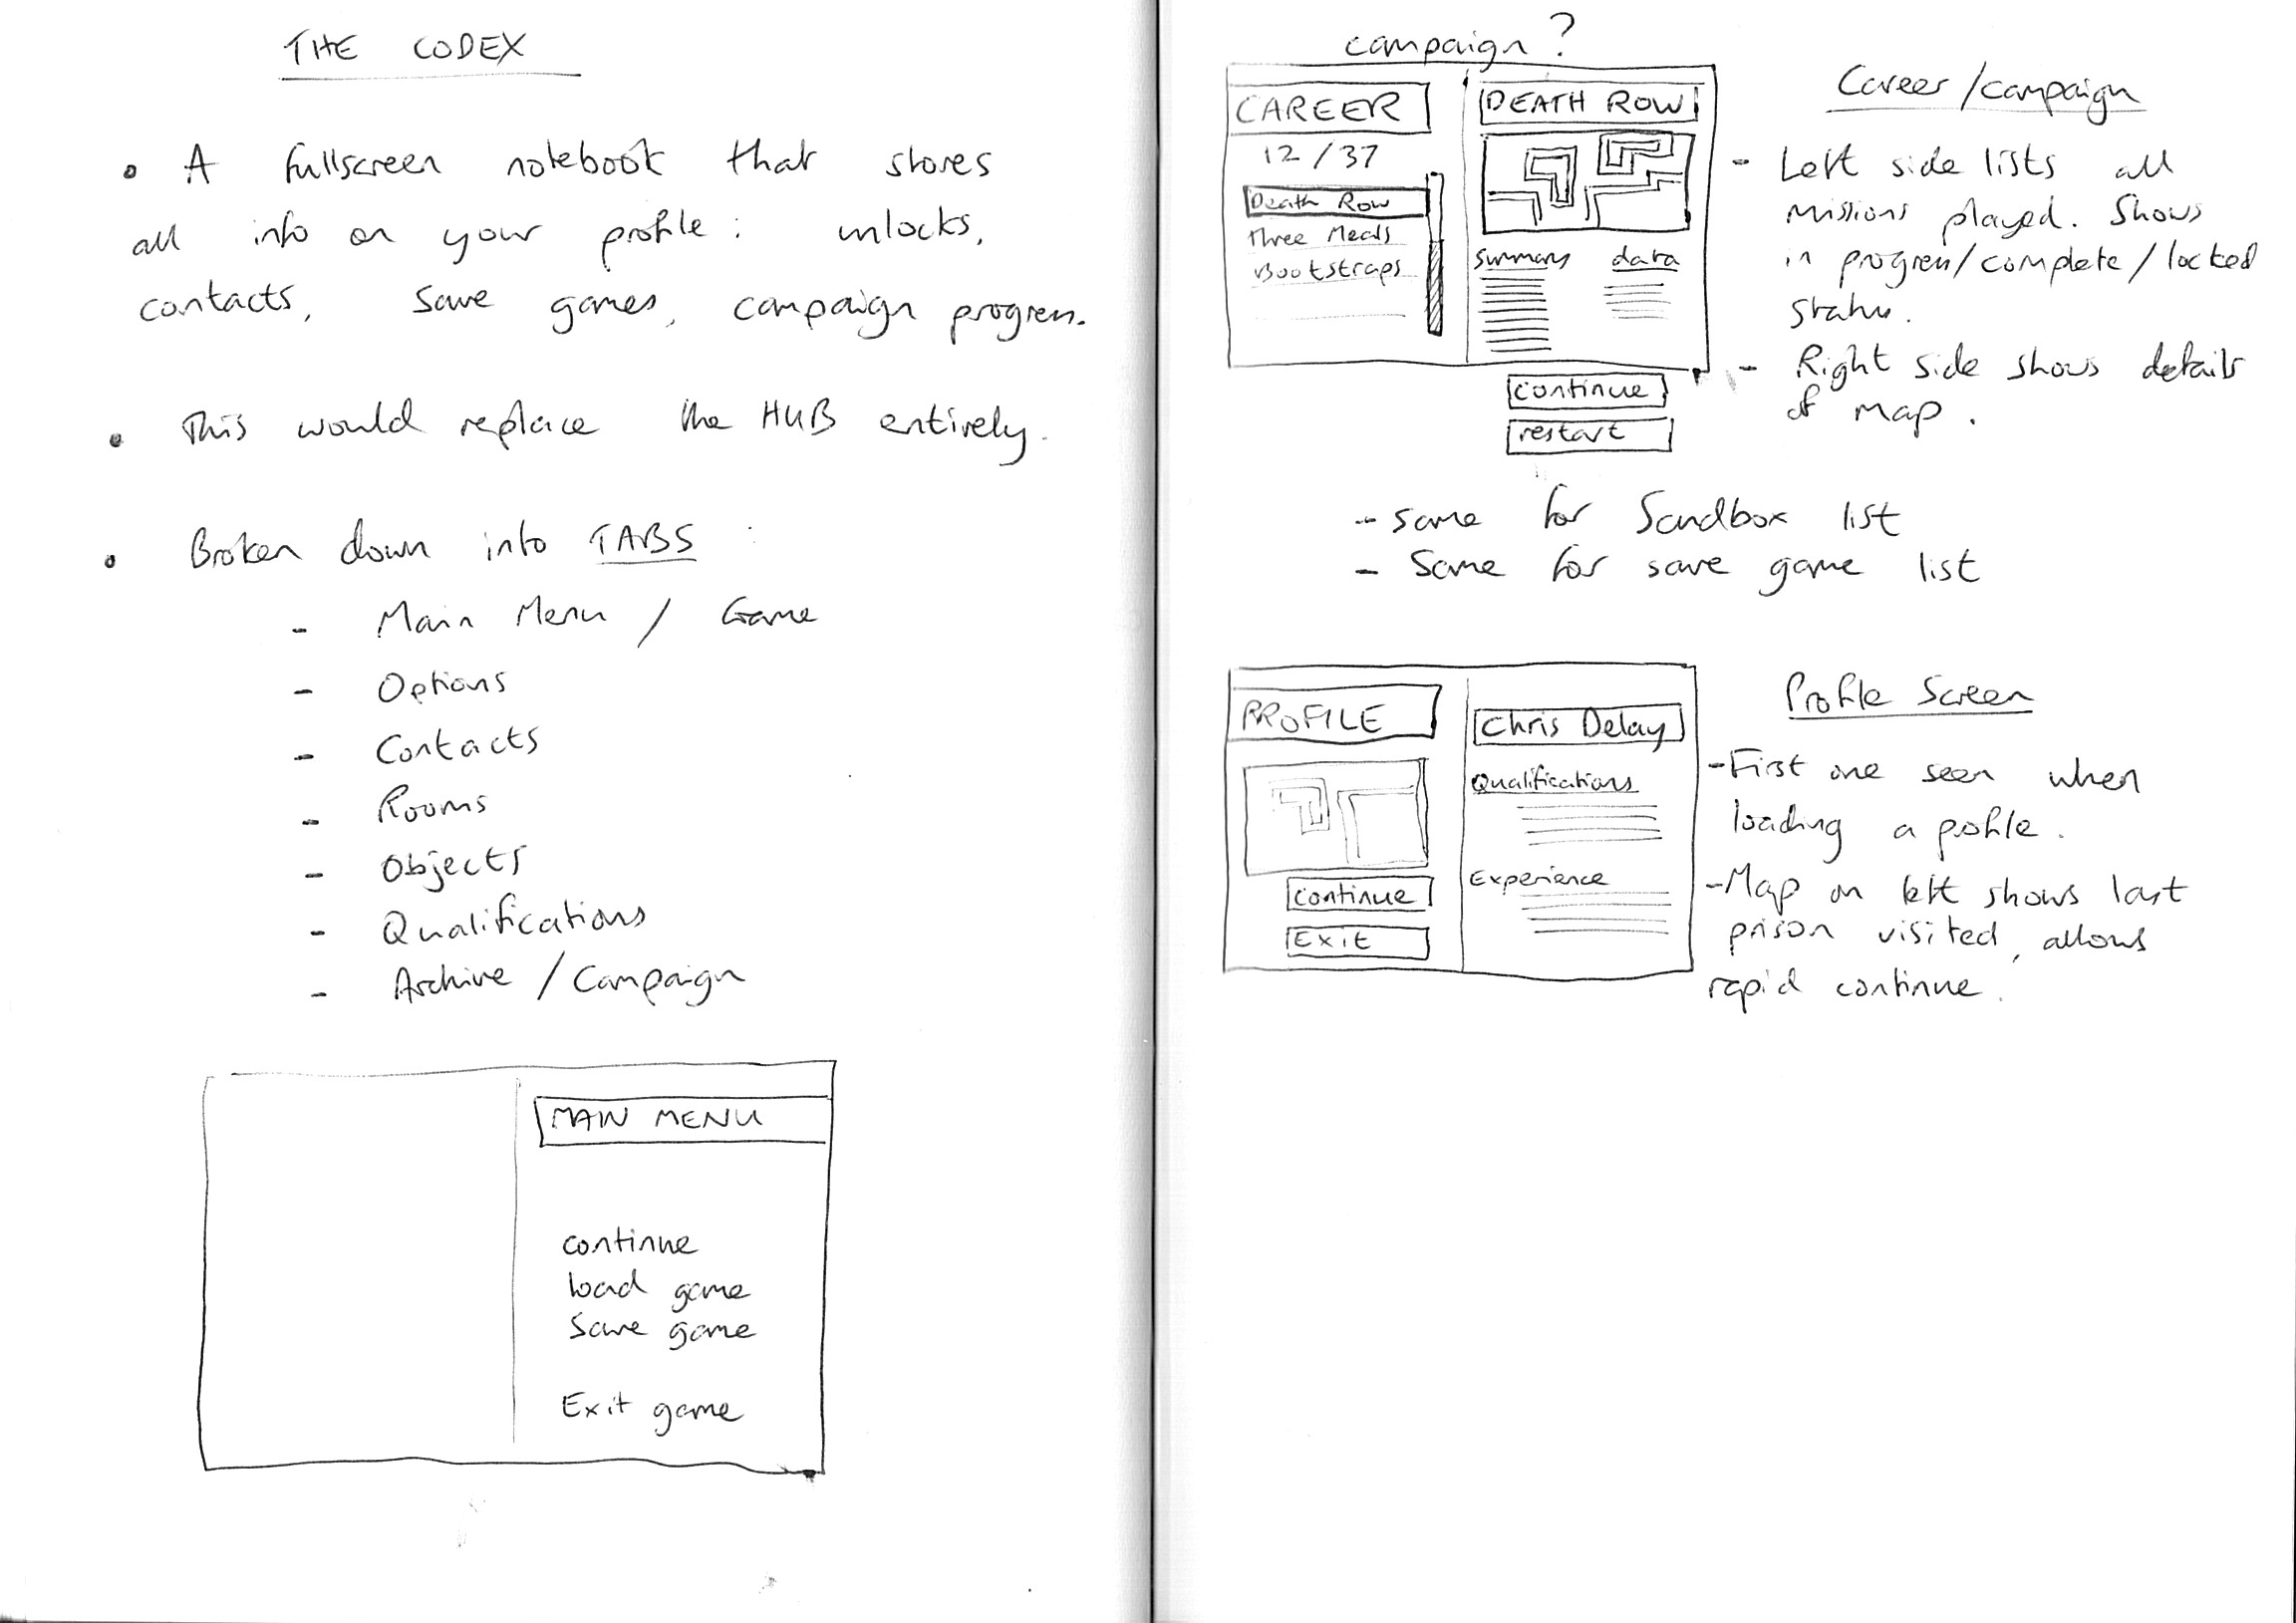 THE CODEX
• A fullscreen notebook that stores
all info on your profile: unlocks,
contacts, save games, campaign progress.
• This would replace the HUB entirely.
• Broken down into TABS:
- Main Menu / Game
- Options
- Contacts
- Rooms
- Objects
- Qualifications
- Archive / Campaign
MAIN MENU
continue
load game
Save game
Exit game
campaign?
CAREER
12/37
Death Row
Three Meals
Bootstraps
DEATH ROW
summary data
continue
restart
Career/campaign
- Left side lists all
missions played. Shows
in progress/complete/locked
status.
- Right side shows details
of map.
- same for Sandbox list
- Same for save game list
PROFILE
continue
Exit
Chris Delay
Qualifications
Experience
Profile Screen
- First one seen when
loading a profile.
- Map on left shows last
prison visited, allows
rapid continue.